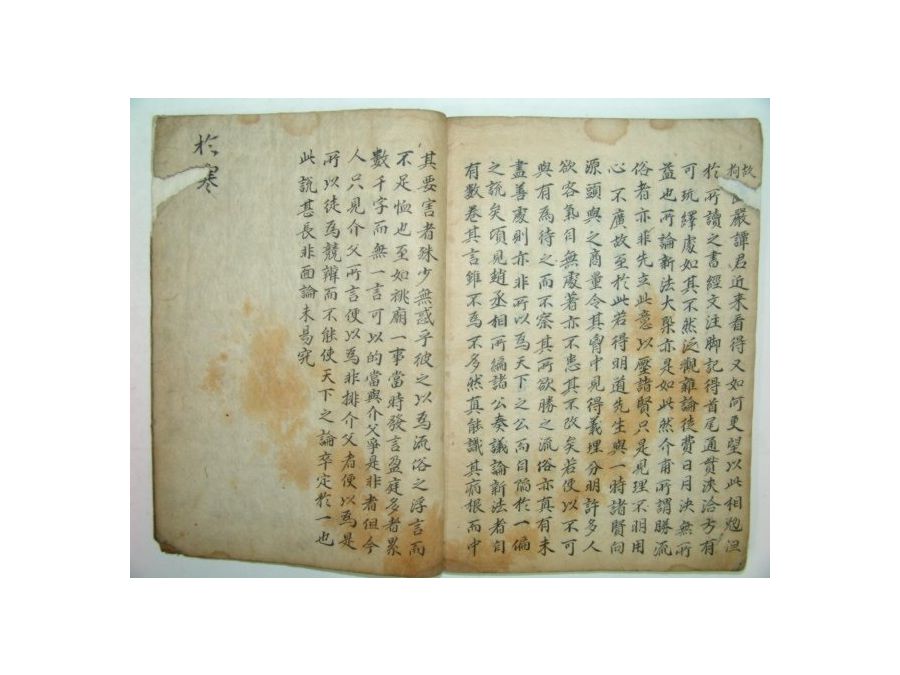 嚴譚君近来看得又如何更望以此相勉但
於所讀之書經文注脚記得首尾通貫浹洽方有
可玩繹處如其不然泛觀雜論徒費日月決無所
益也所論新法大槩亦是如此然介甫所謂勝流
俗者亦非先立此意以壓諸賢只是見理不明用
心不廣故至於此若得明道先生與一時諸賢向
源頭與之商量令其胷中見得義理分明許多人
欲客氣自無處著亦不患其不改矣若便以不可
與有為待之而不察其所欲勝之流俗亦真有未
盡善處則亦非所以為天下之公而自陷於一偏
之説矣頃見趙丞相所編諸公奏議論新法者自
有數卷其言雖不為不多然真能識其病根而中
其要害者殊少無惑乎彼之以為流俗之浮言而
不足恤也至如祧廟一事當時發言盈庭多者累
數千字而無一言可以的當與介父爭是非者但今
人只見介父所言便以為非排介父者便以為是
所以徒為競辯而不能使天下之論卒定於一也
此説甚長非面論未易究
於